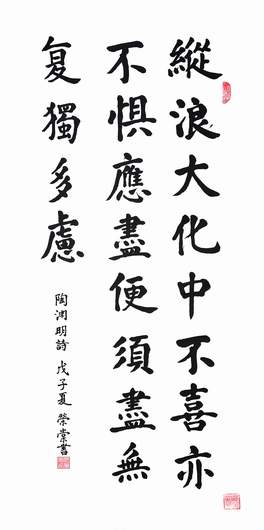 縱浪大化中不喜亦
不惧應盡便須盡無
复獨多慮
陶渊明詩 戊子夏 榮棠書